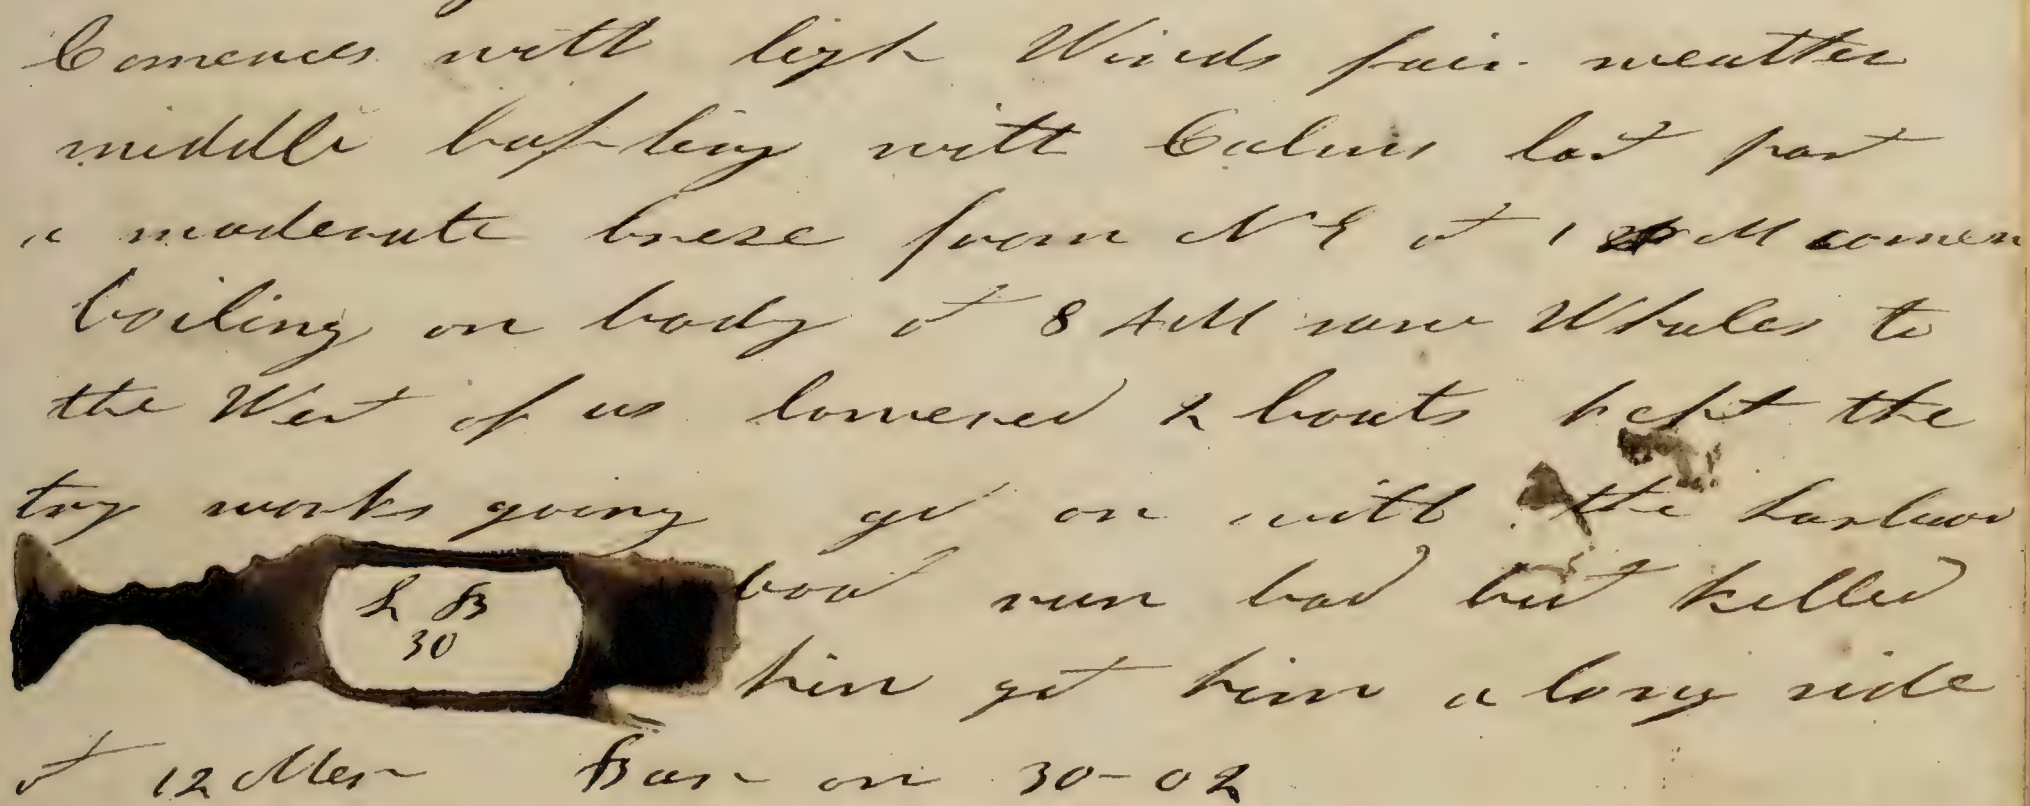 Comences with ligh Winds fair weather
middle baffling with Calms last part
a moderate breze from N E at 1 M comen
boiling on body at 8 AM saw Whales to
the West of us lowered 2 boats kept the
try works going got on with the larbur
boat run bad but killed
L B
30
him got him a long side
at 12 Mer Bar on 30-02